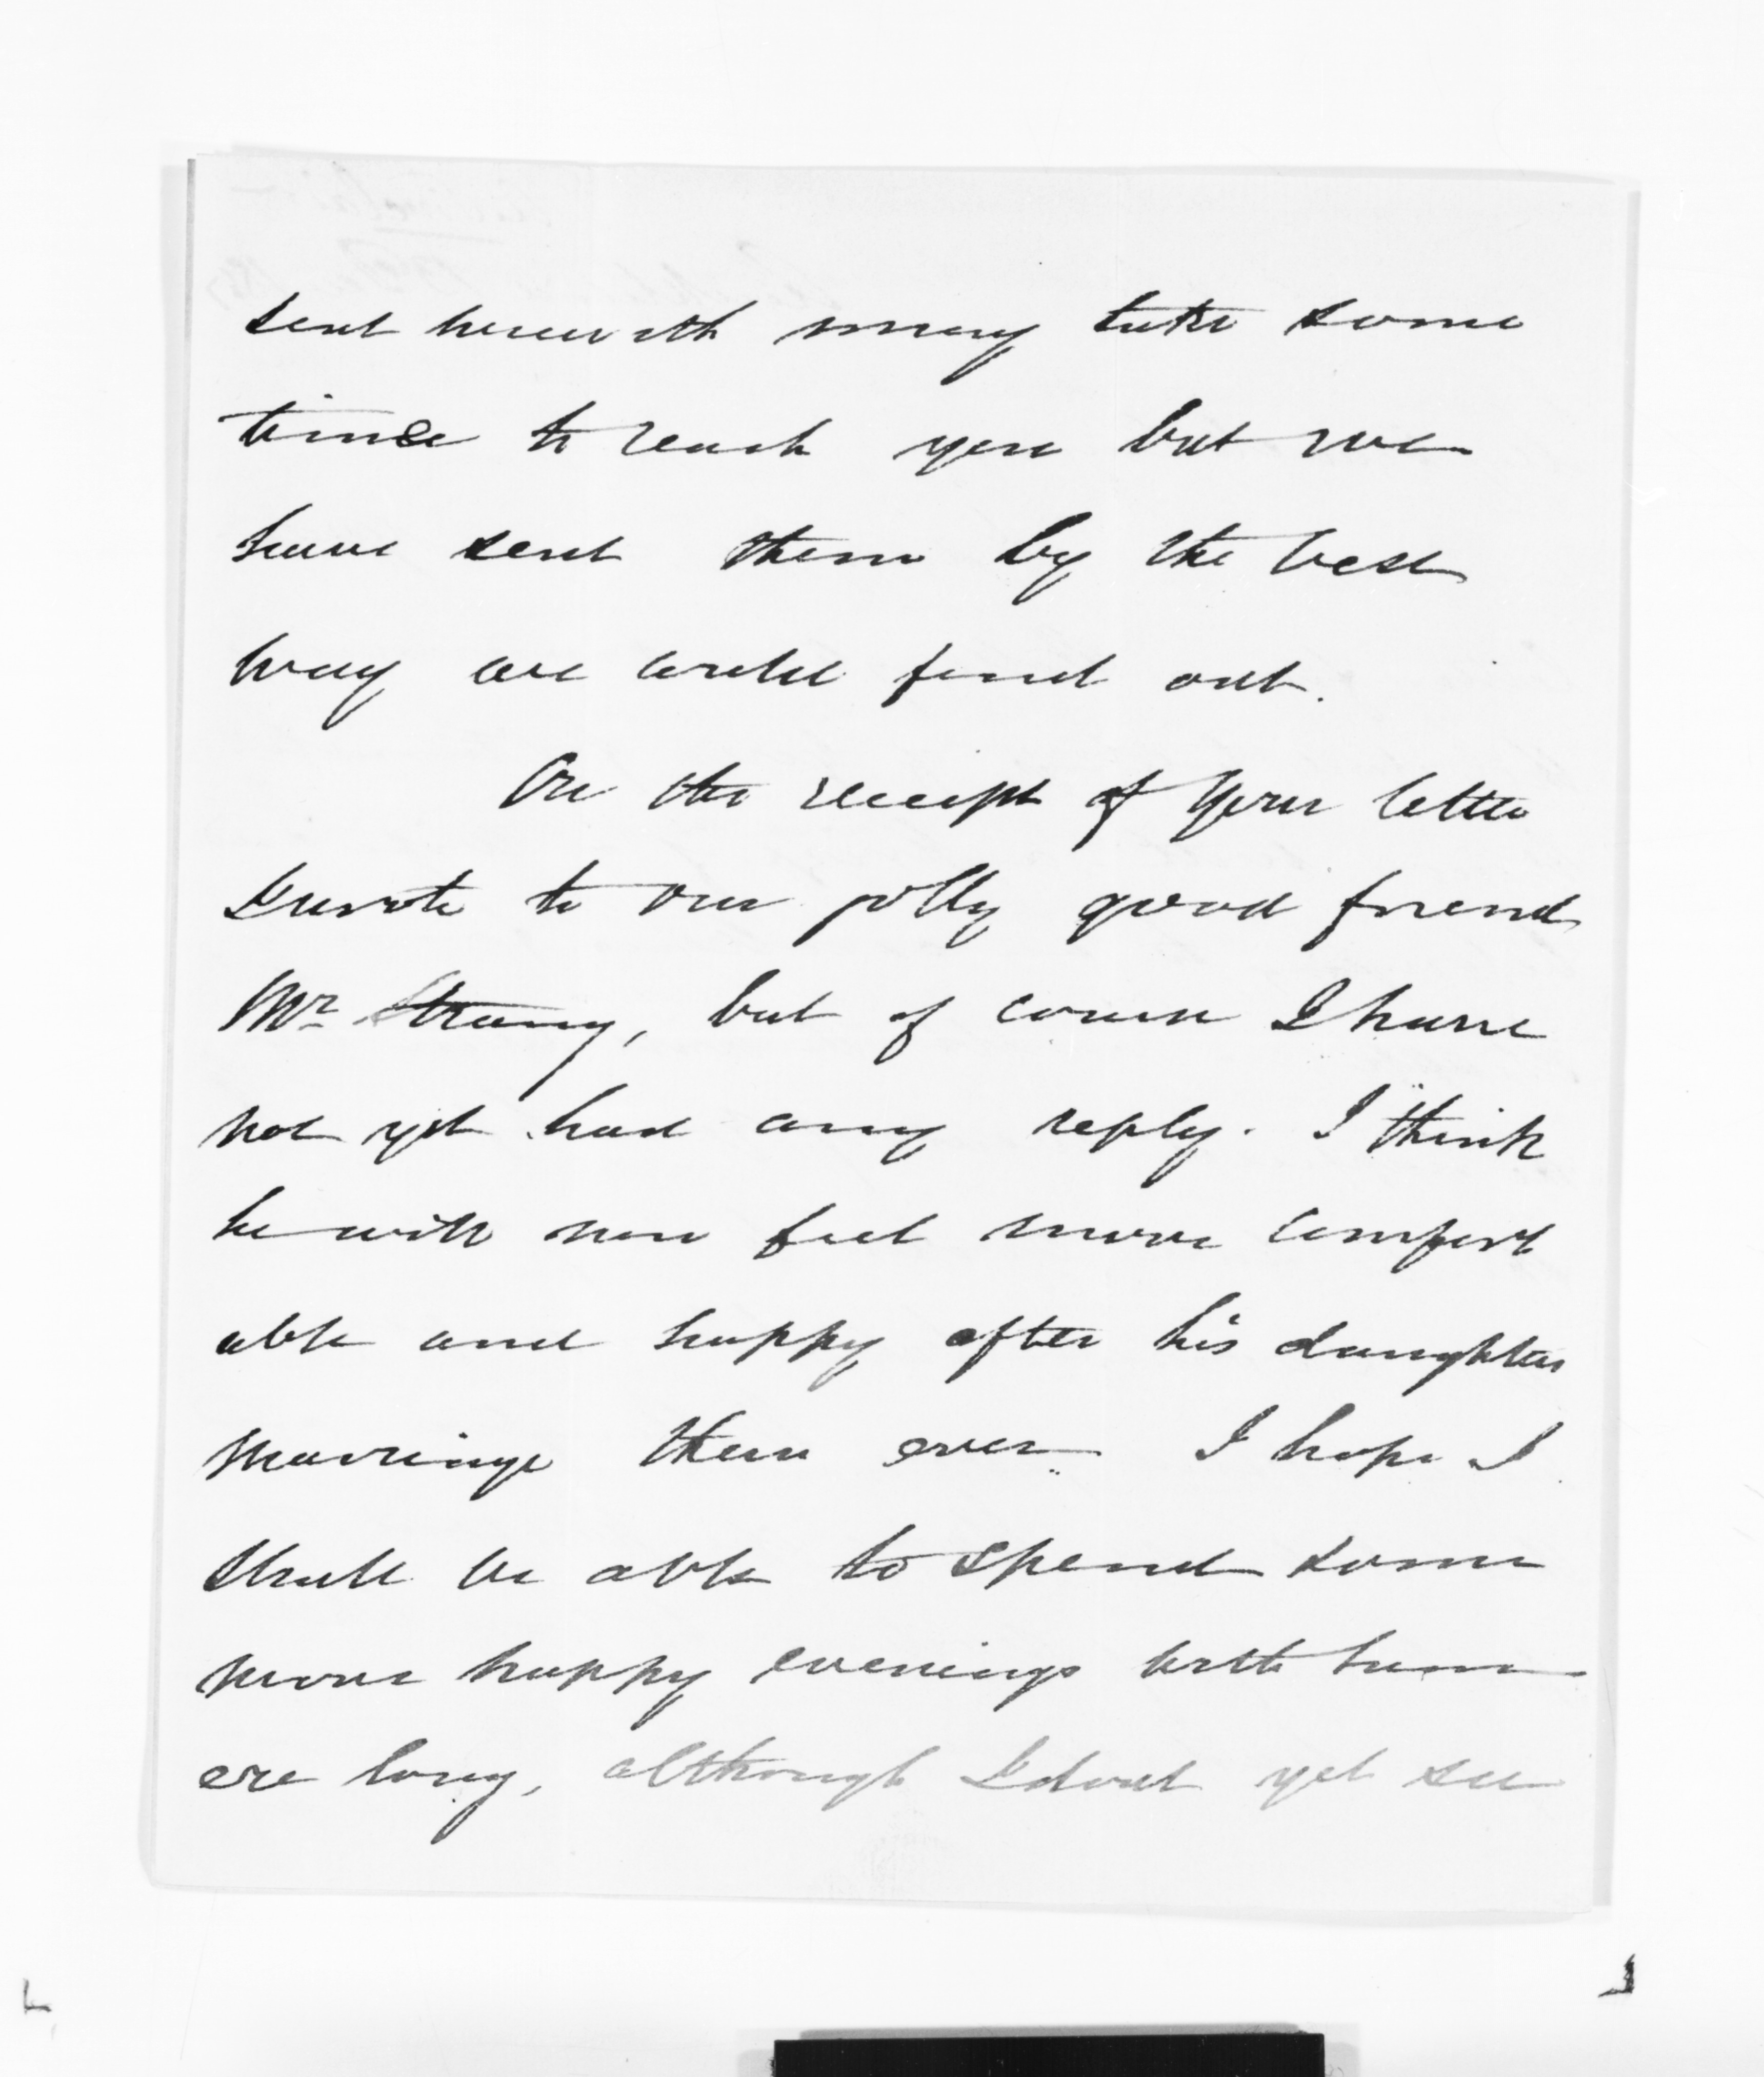 sent herewith may take some
time to reach you but we
have sent them by the best
way we could find out.
On the receipt of your letter
I wrote to our jolly good friend
Mr Strang, but of course I have
not yet had any reply. I think
he will now feel more comfort
able and happy after his daughters
marriage than ever I hope I
shall be able to spend some
more happy evenings with him
ere long, although I dont yet see